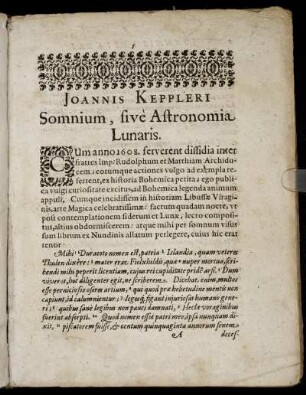 1
JOANNIS KEPPLERI
Somnium, sivè Astronomia
Lunaris.
CUm anno 1608. ferverent dissidia inter
fratres Imp: Rudolphum et Matthiam Archidu-
cem; eorumque actiones vulgo ad exempla re-
ferrent, ex historia Bohemica petita; ego publi-
ca vulgi curiositate excitus, ad Bohemica legenda animum
appuli. Cumque incidissem in historiam Libussæ Viragi-
nis, arte Magica celebratissimæ: factum quadam nocte, ut
post contemplationem siderum et Lunæ, lecto compositus,
altius obdormiscerem: atque mihi per somnum visus
sum librum ex Nundinis allatum perlegere, cujus hic erat
tenor:
Mihi Duracoto nomen est, patria Islandia, quam veteres
Thulen dixêre: mater erat Fiolxhildis, quæ nuper mortua, scri-
bendi mihi peperit licentiam, cujus rei cupiditate pridem arsi. Dum
viveret, hoc diligenter egit, ne scriberem. Dicebat enim, multos
esse perniciosos osores artium, qui quod præ hebetudine mentis non
capiunt, id calumnientur; legesque figant injuriosas humano gene-
ri; quibus sanè legibus non pauci damnati, Heclæ voraginibus
fuerint absorpti. Quod nomen esset patri meo, ipsa nunquam di-
xit, piscatorem fuisse, & centum quinquaginta annorum senem
A deces-